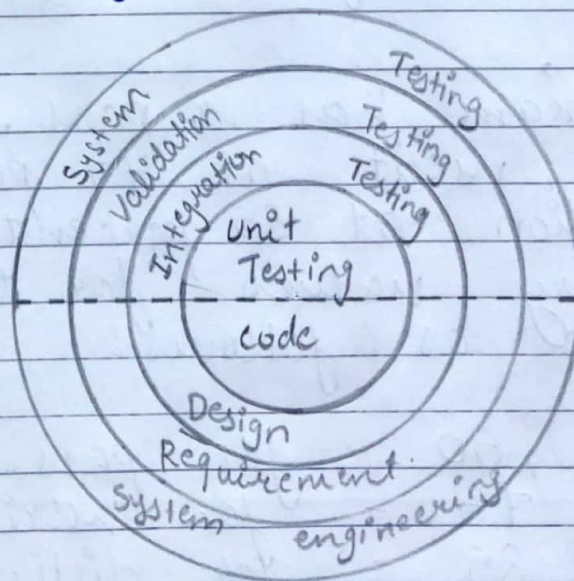 System Testing
Validation Testing
Integration Testing
Unit
Testing
Code
Design
Requirement.
System engineering